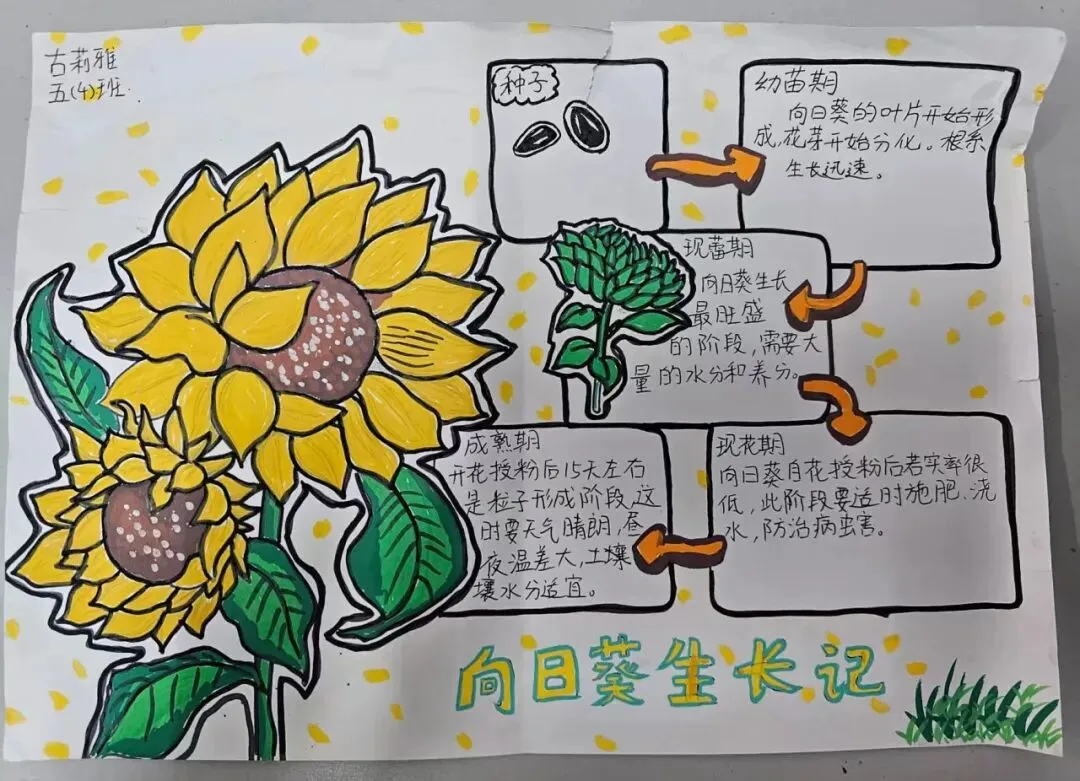 古莉雅
五(4)班
种子
幼苗期
向日葵的叶片开始形
成,花芽开始分化。根系
生长迅速。
现蕾期
向日葵生长
最旺盛
的阶段,需要大
量的水分和养分。
现花期
向日葵自花授粉后若实率很
低,此阶段要适时施肥、浇
水,防治病虫害。
成熟期
开花授粉后15天左右
是粒子形成阶段,这
时要天气晴朗,昼
夜温差大,土壤
壤水分适宜。
向日葵生长记